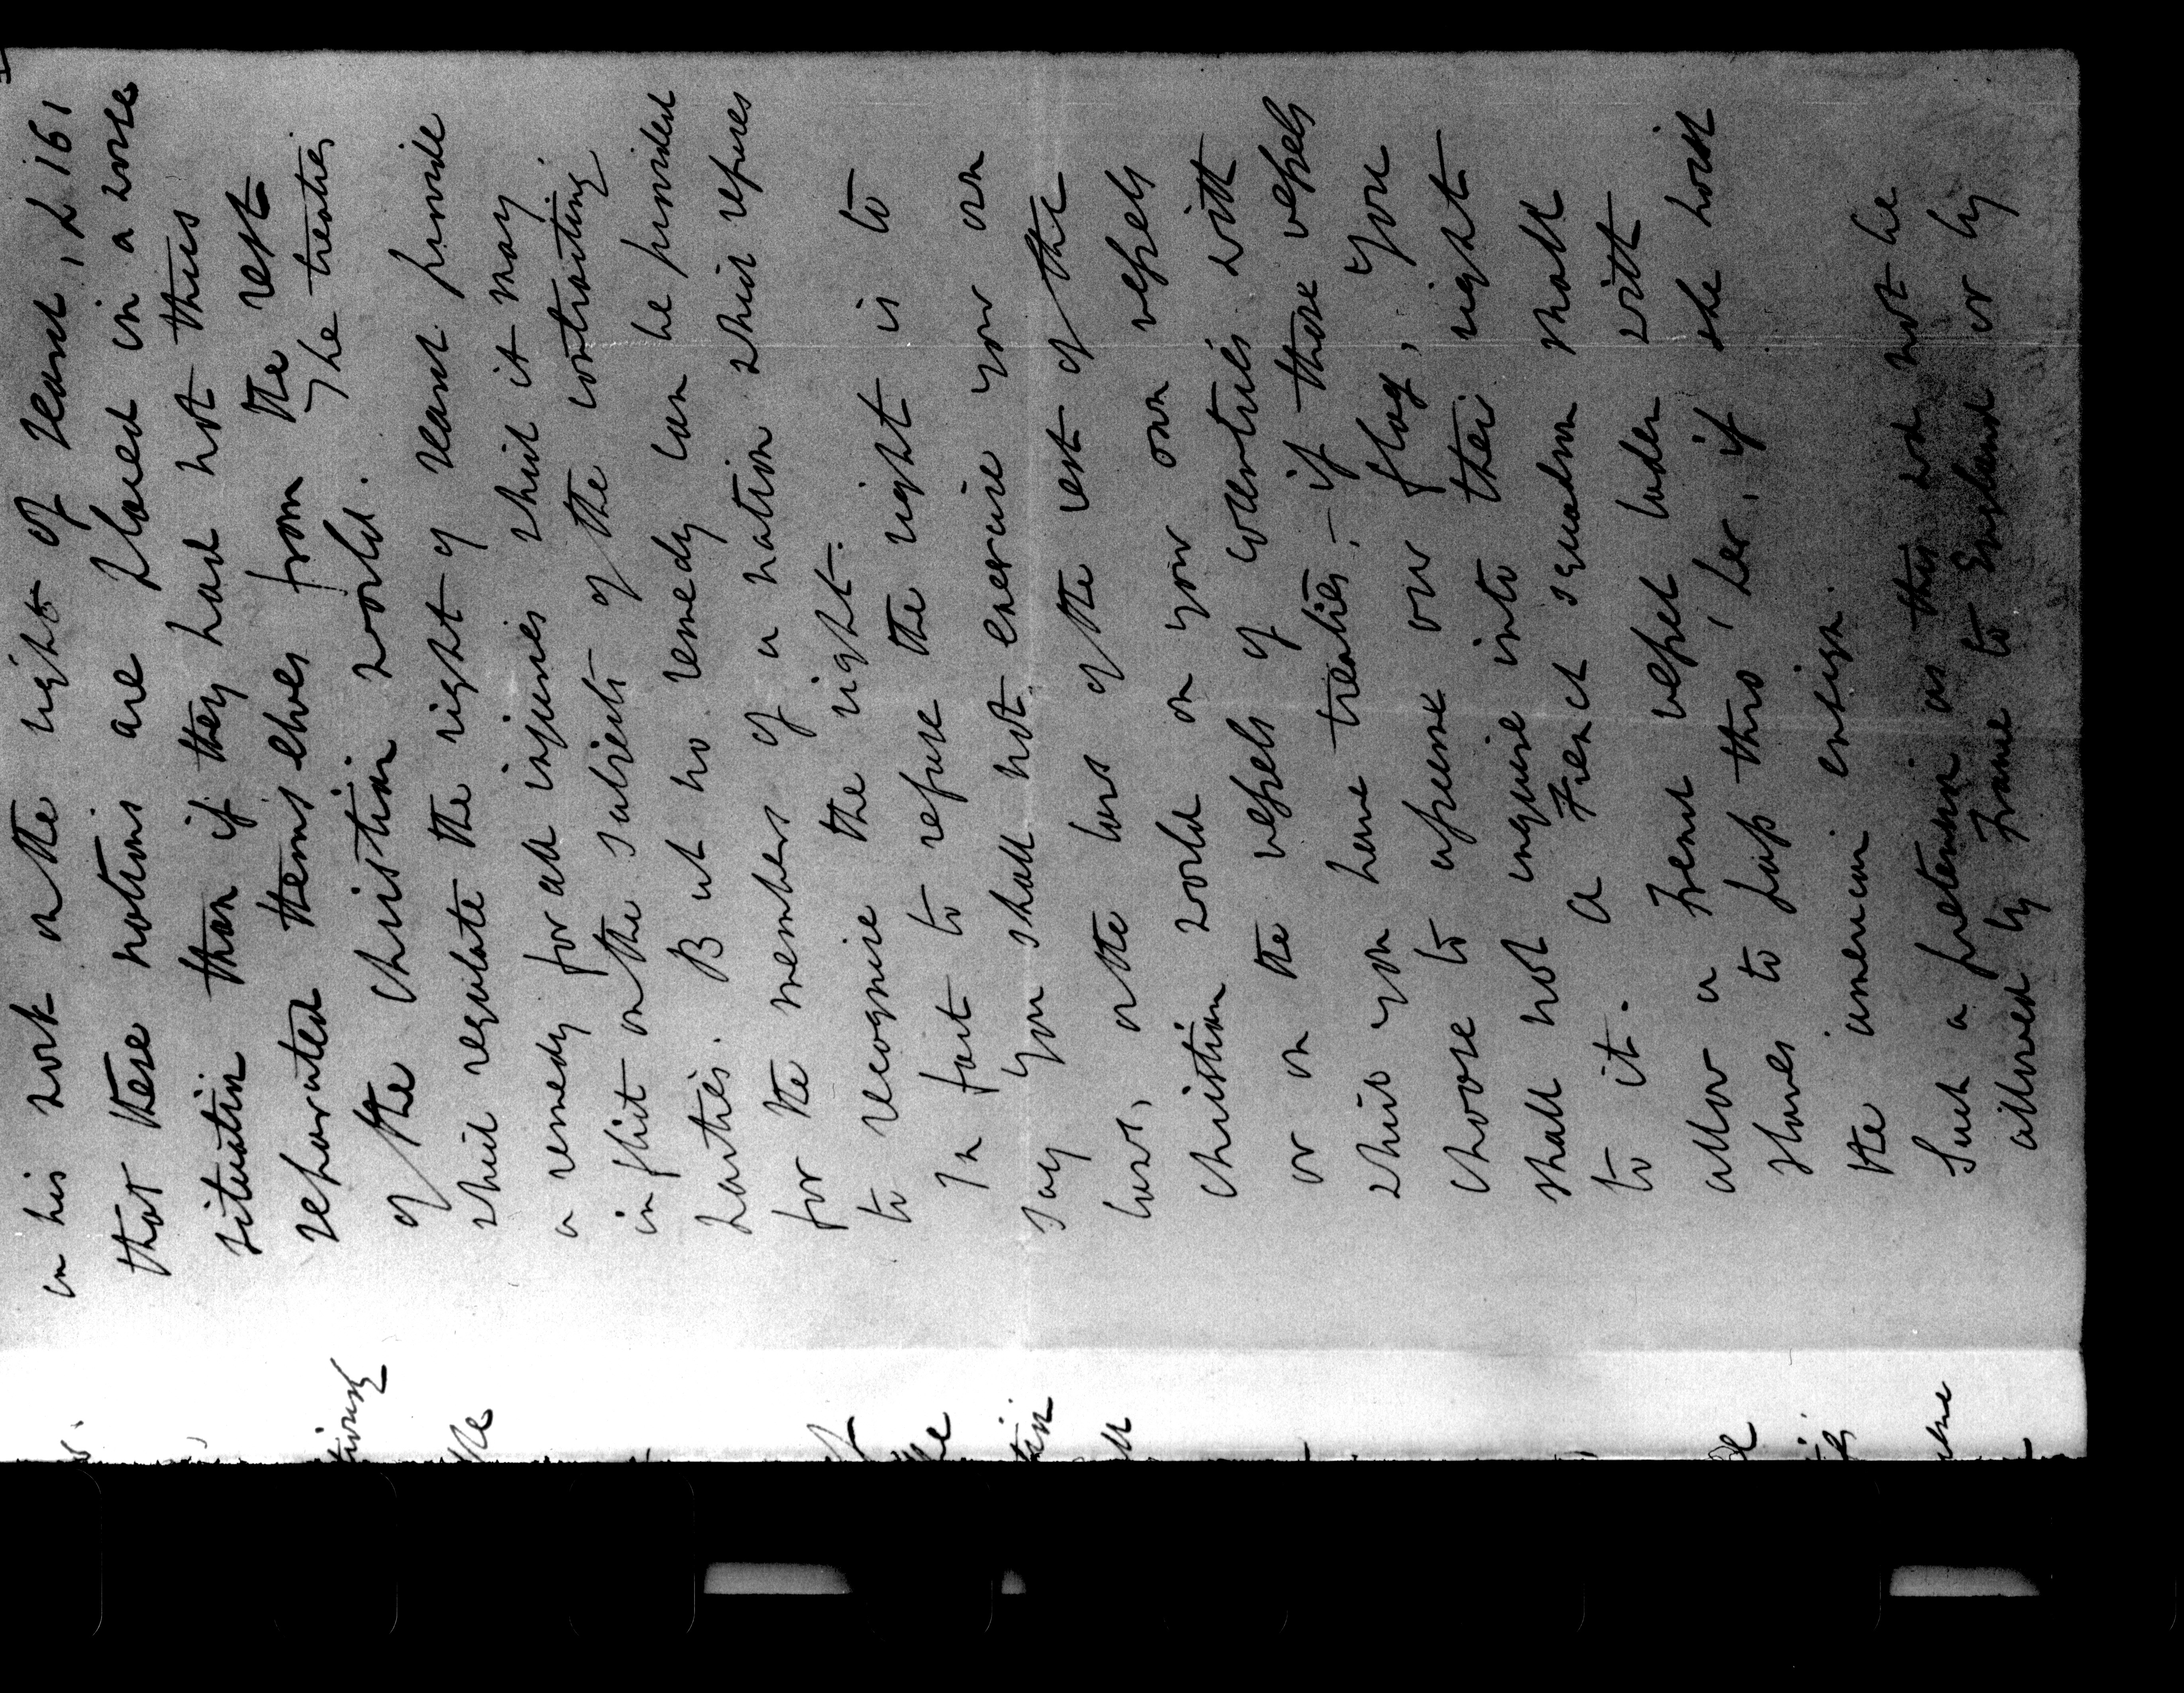 in his work on the right of search, p. 161
that these nations are placed in a worse
situation than if they had not thus
separated themselves from the rest
of the Christian world. The treaties
which regulate the right of search provide
a remedy for all injuries which it may
inflict on the subjects of the contracting
parties. But no remedy can be provided
for the members of a nation which refuses
to recognise the right.
In fact to refuse the right is to
say You shall not exercise your own
laws, or the laws of the rest of the
Christian world on your own vessels
or on the vessels of countries with
which you have treaties, – if those vessels
choose to assume our flag, You
shall not inquire into their right
to it. A French squadron shall
allow a French vessel laden with
slaves to pass thro' her, if she hoist
the American ensign.
Such a pretension as this wd not be
allowed by France to England or by